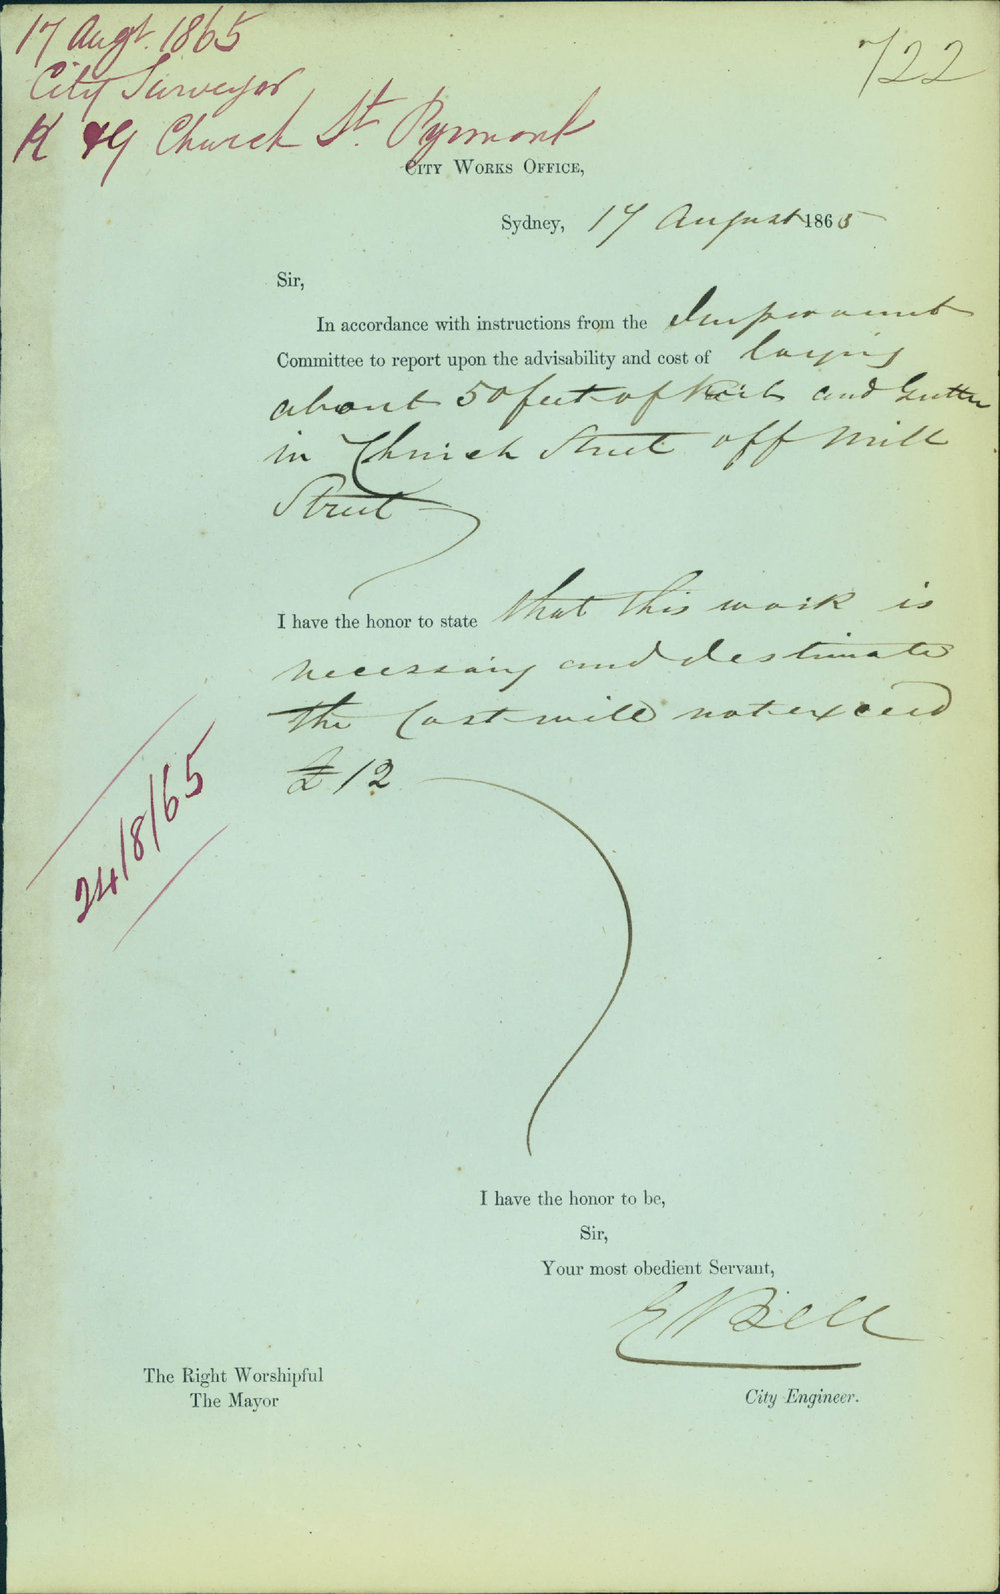 17 Augt. 1865
722
City Surveyor
K & G Church St. Pyrmont
City Works Office,
Sydney, 17 August 1865
Sir,
In accordance with instructions from the Improvement
Committee to report upon the advisability and cost of laying
about 50 feet of Kerb and Gutter
in Church Street off Mill
Street
I have the honor to state that this work is
necessary and I estimate
the Cost will not exceed
£12
24/8/65
I have the honor to be,
Sir,
Your most obedient Servant,
E Bell
The Right Worshipful
The Mayor
City Engineer.